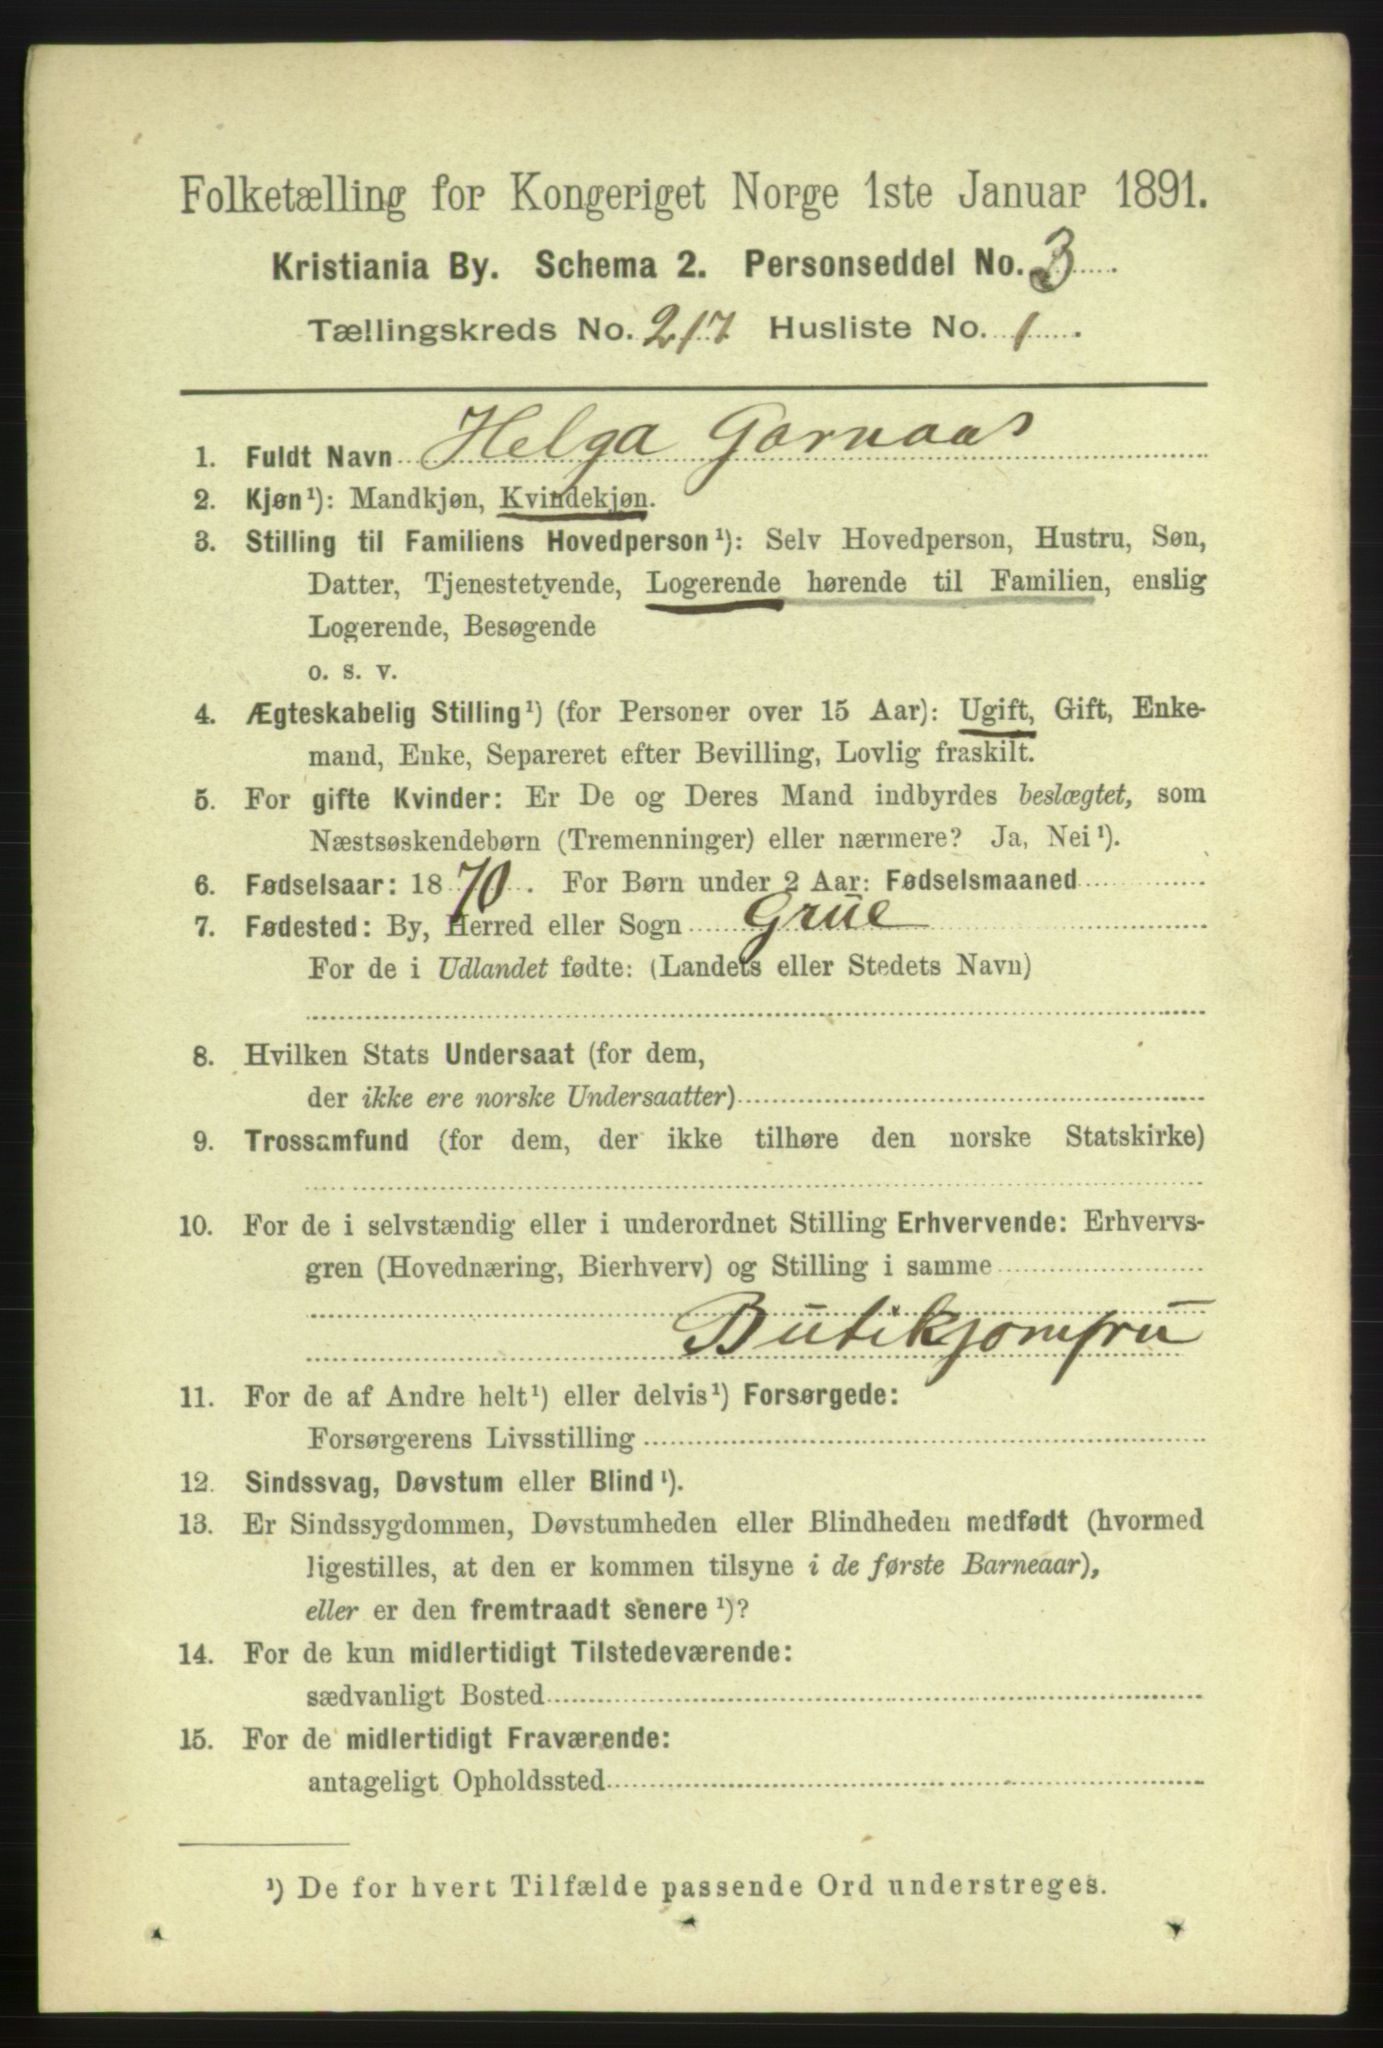 Folketælling for Kongeriget Norge 1ste Januar 1891.
Kristiania By. Schema 2. Personseddel No. 3.
Tællingskreds No. 217 Husliste No. 1.
1. Fuldt Navn Helga Gornaas
2. Kjøn¹): Mandkjøn, Kvindekjøn.
3. Stilling til Familiens Hovedperson¹): Selv Hovedperson, Hustru, Søn,
Datter, Tjenestetyende, Logerende hørende til Familien, enslig
Logerende, Besøgende
o. s. v.
4. Ægteskabelig Stilling¹) (for Personer over 15 Aar): Ugift, Gift, Enke-
mand, Enke, Separeret efter Bevilling, Lovlig fraskilt.
5. For gifte Kvinder: Er De og Deres Mand indbyrdes beslægtet, som
Næstsøskendebørn (Tremenninger) eller nærmere? Ja, Nei¹).
6. Fødselsaar: 1870. For Børn under 2 Aar: Fødselsmaaned
7. Fødested: By, Herred eller Sogn Grue
For de i Udlandet fødte: (Landets eller Stedets Navn)
8. Hvilken Stats Undersaat (for dem,
der ikke ere norske Undersaatter)
9. Trossamfund (for dem, der ikke tilhøre den norske Statskirke)
10. For de i selvstændig eller i underordnet Stilling Erhvervende: Erhvervs-
gren (Hovednæring, Bierhverv) og Stilling i samme
Butikjomfru
11. For de af Andre helt¹) eller delvis¹) Forsørgede:
Forsørgerens Livsstilling
12. Sindssvag, Døvstum eller Blind¹).
13. Er Sindssygdommen, Døvstumheden eller Blindheden medfødt (hvormed
ligestilles, at den er kommen tilsyne i de første Barneaar),
eller er den fremtraadt senere¹)?
14. For de kun midlertidigt Tilstedeværende:
sædvanligt Bosted
15. For de midlertidigt Fraværende:
antageligt Opholdssted
¹) De for hvert Tilfælde passende Ord understreges.